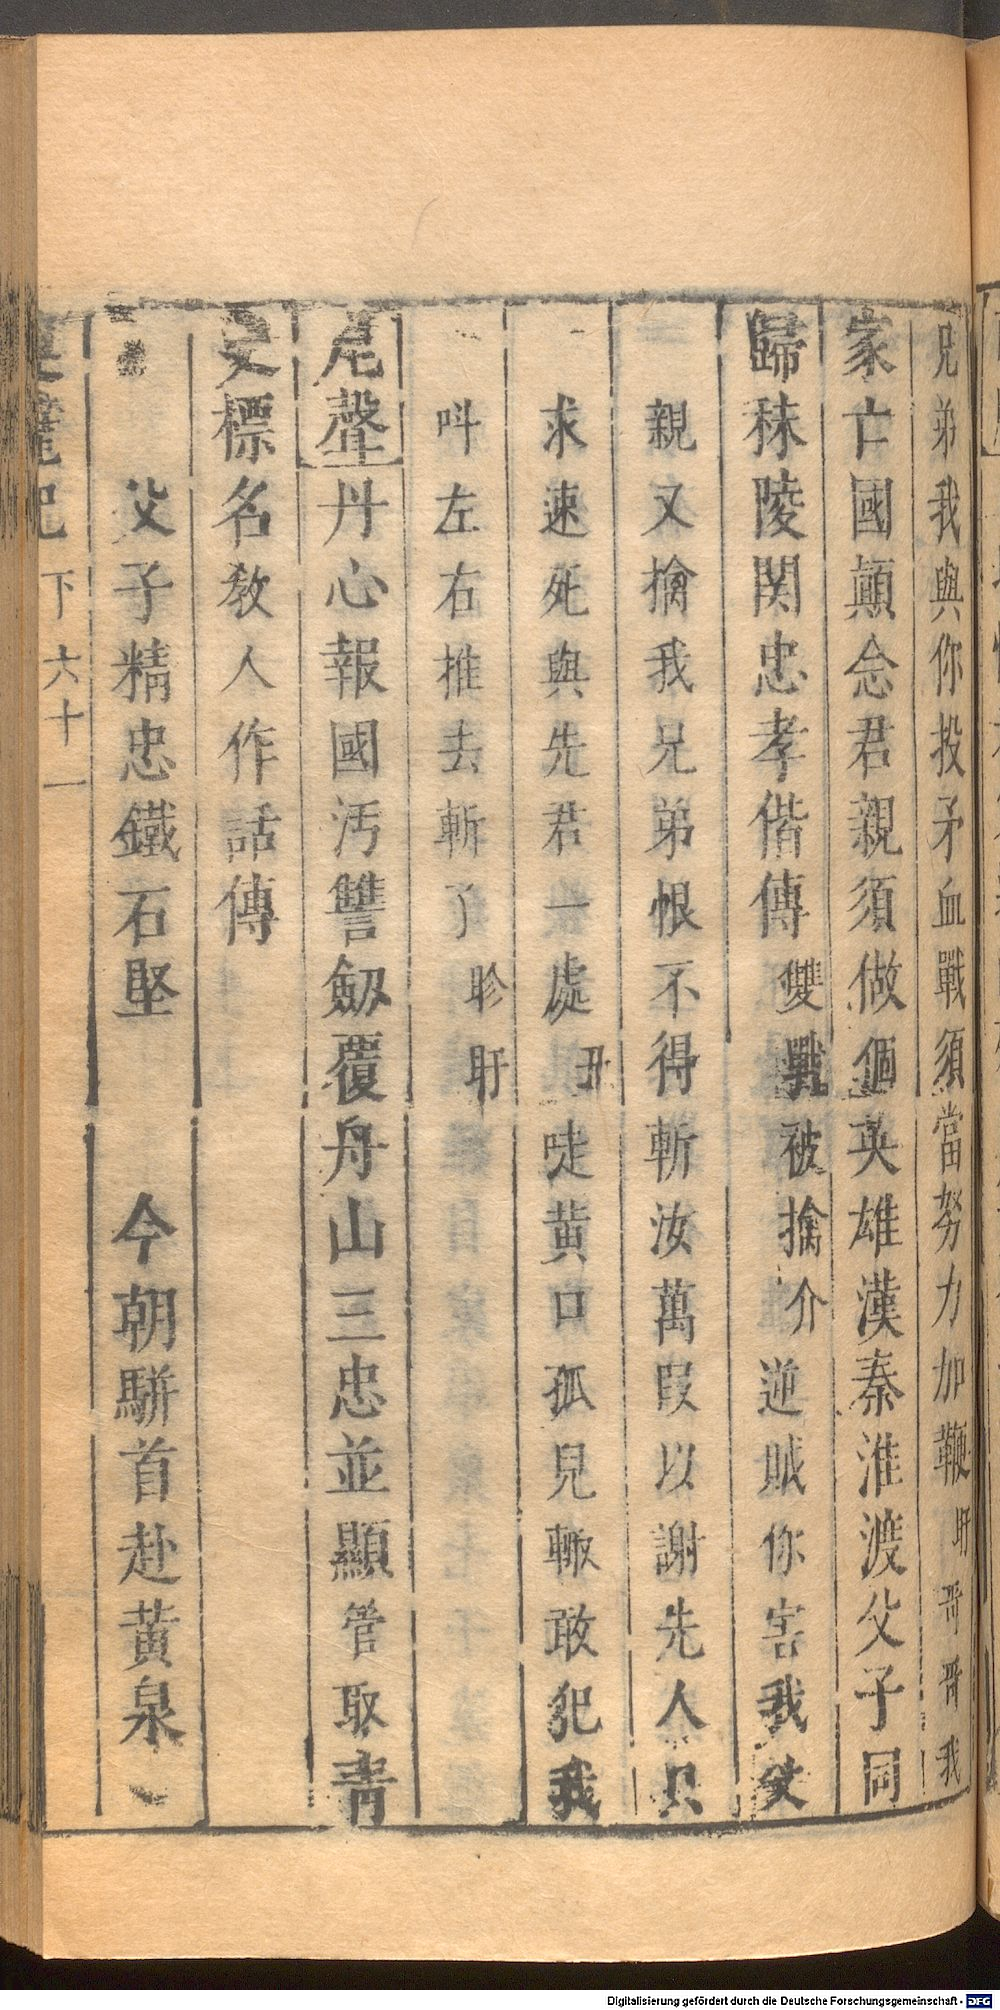 兄弟我與你投矛血戰須當努力加鞭盱哥哥我
家亡國顛念君親須做個英雄漢秦淮渡父子同
歸秣陵関忠孝偕傳雙戰被擒介逆賊你害我父
親又擒我兄弟恨不得斬汝萬叚以謝先人只
求速死與先君一處丑哫黄口孤兒輙敢犯我
呌左右推去斬了眕盱
尾聲丹心報國汚讐劔覆舟山三忠並顯管取靑
史標名教人作話傳
父子精忠鐵石堅 今朝駢首赴黄泉
記 下 六十一
Digitalisierung gefördert durch die Deutsche Forschungsgemeinschaft - DFG